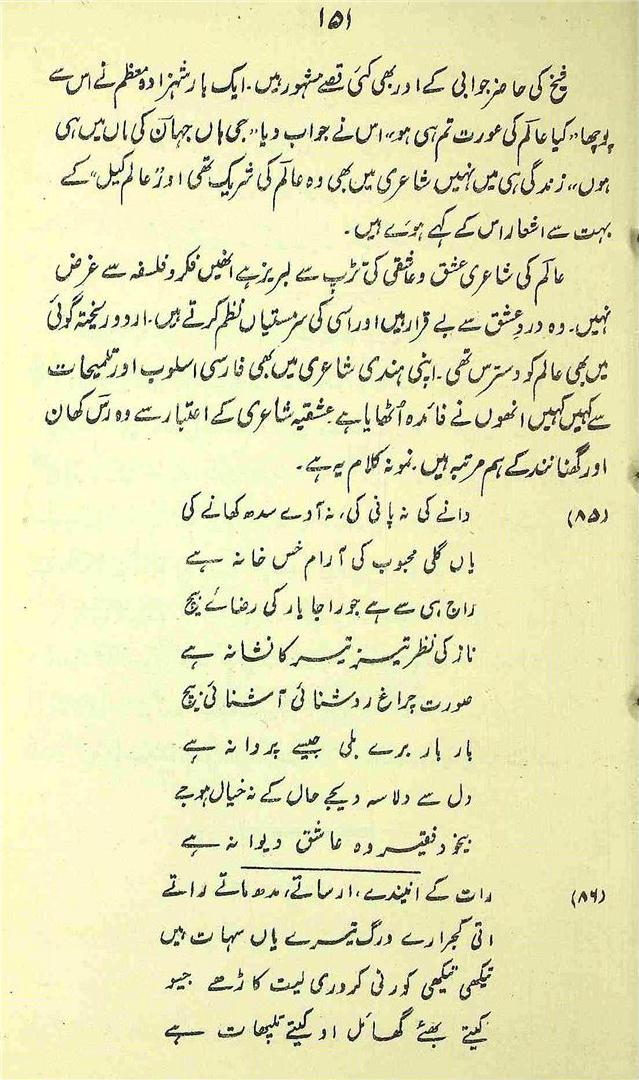 ۱۵۱
شیخ کی حاضر جوابی کے اور بھی کئی قصے مشہور ہیں۔ ایک بار شہزادہ معظم نے اس سے
پوچھا ”کیا عالم کی عورت تم ہی ہو“ اس نے جواب دیا ”جی ہاں جہان کی ماں میں ہی
ہوں“ زندگی ہی میں نہیں شاعری میں بھی وہ عالم کی شریک تھی اور ”عالم کیل“ کے
بہت سے اشعار اس کے کہے ہوئے ہیں۔
عالم کی شاعری عشق و عاشقی کی تڑپ سے لبریز ہے انھیں فکر و فلسفہ سے غرض
نہیں۔ وہ دردِ عشق سے بے قرار ہیں اور اسی کی سرمستیاں نظم کرتے ہیں۔ اردو ریختہ گوئی
میں بھی عالم کو دسترس تھی۔ اپنی ہندی شاعری میں بھی فارسی اسلوب اور تلمیحات
سے کہیں کہیں انھوں نے فائدہ اُٹھایا ہے عشقیہ شاعری کے اعتبار سے وہ رس کھان
اور گھنانند کے ہم مرتبہ ہیں۔ نمونہ کلام یہ ہے۔
(۸۵) دانے کی نہ پانی کی، نہ آوے سدھ کھانے کی
یاں گلی محبوب کی آرام خس خانہ ہے
راج ہی سے ہے جو راجا یار کی رضائے بیچ
ناز کی نظر تیز تیر کا نشانہ ہے
صورت چراغ روشنائی آشنائی بیچ
بار بار برے بلی جیسے پروانہ ہے
دل سے دلاسہ دیجے حال کے نہ خیال ہوجے
بیخود فقیر وہ عاشق دیوانہ ہے
(۸۶) رات کے انیندے، ارساتے، مدھ ماتے راتے
اتی کجرارے درگ تیرے یاں سہات ہیں
تیکھی تیکھی کورنی کروری لیت کاڑھے جیو
کیتے بھئے گھائل او کیتے تلپھات ہے